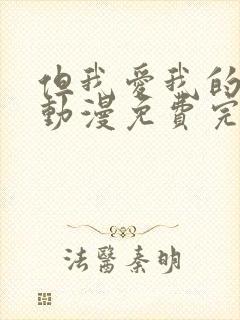 但我愛我的
動漫免費完
法醫秦明